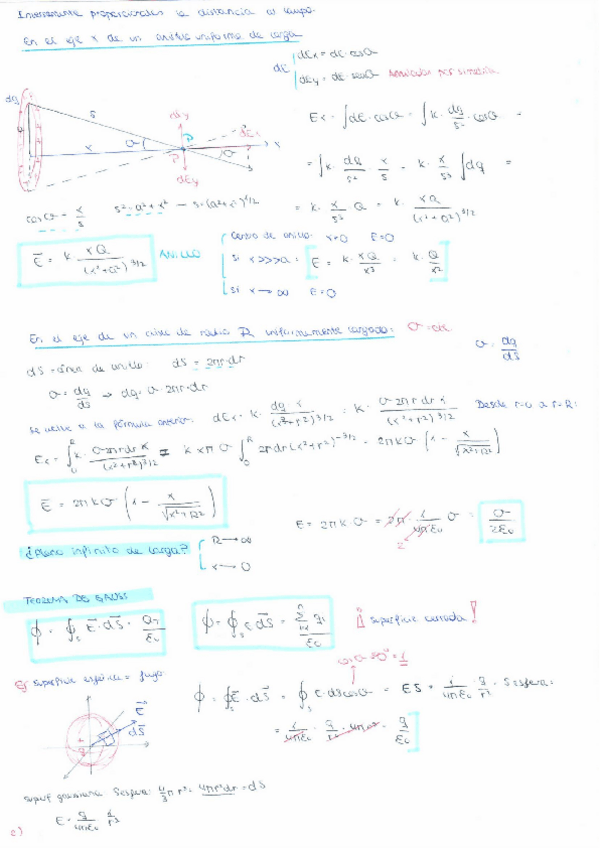 Inversamente proporcionales la distancia al campo.
En el eje x de un anillo uniforme de carga
dE { dEx = dE · cosθ
dEy = dE · senθ Anulados por simetría
dq
s
x
θ
P
dEy
dEx
Ex = ∫dE·cosθ = ∫ k · dq/s² · cosθ =
= ∫k · dq/s² · x/s = k · x/s³ ∫dq =
cosθ = x/s s² = a² + x² → s = (a²+x²)^1/2
= k · x/s³ Q = k · xQ/(x²+a²)^3/2
E = k · xQ/(x²+a²)^3/2 ANILLO
Centro de anillo: x=0 E=0
Si x>>>a: E = k · xQ/x³ = k · Q/x²
Si x → ∞ E=0
En el eje de un disco de radio R uniformemente cargado: σ = cte
σ = dq/ds
dS = área de anillo: dS = 2πr·dr
σ = dq/ds → dq = σ·2πr·dr
Se vuelve a la fórmula anterior: dEx = k · dq·x/(x²+r²)^3/2 = k · σ·2πr dr x/(x²+r²)^3/2 Desde r=0 a r=R:
Ex = ∫₀ᴿ k · σ2πr dr x/(x²+r²)^3/2 = k x π σ ∫₀ᴿ 2r dr (x²+r²)^-3/2 = 2πkσ (1 - x/√x²+R²)
E = 2πkσ (1 - x/√x²+R²)
E = 2πkσ = 2π · 1/4πε₀ σ = σ/2ε₀
2
¿Plano infinito de carga? { R → ∞
x → 0
TEOREMA DE GAUSS
ϕ = ∮s E·dS = QT/ε₀ ϕ = ∮s E dS = Σ qi/ε₀ ¡¡ Superficie cerrada !!
Ej Superficie esférica = flujo
cos 0° = 1
ϕ = ∮s E·dS = ∮s E·dS cosθ = ES = 1/4πε₀ · q/r² · S esfera =
= 1/4πε₀ · q/r² · 4πr² = q/ε₀
E
dS
q
Superf gaussiana: S esfera: 4/3 π r³ = 4πr²dr = dS
E = q/4πε₀ 1/r²